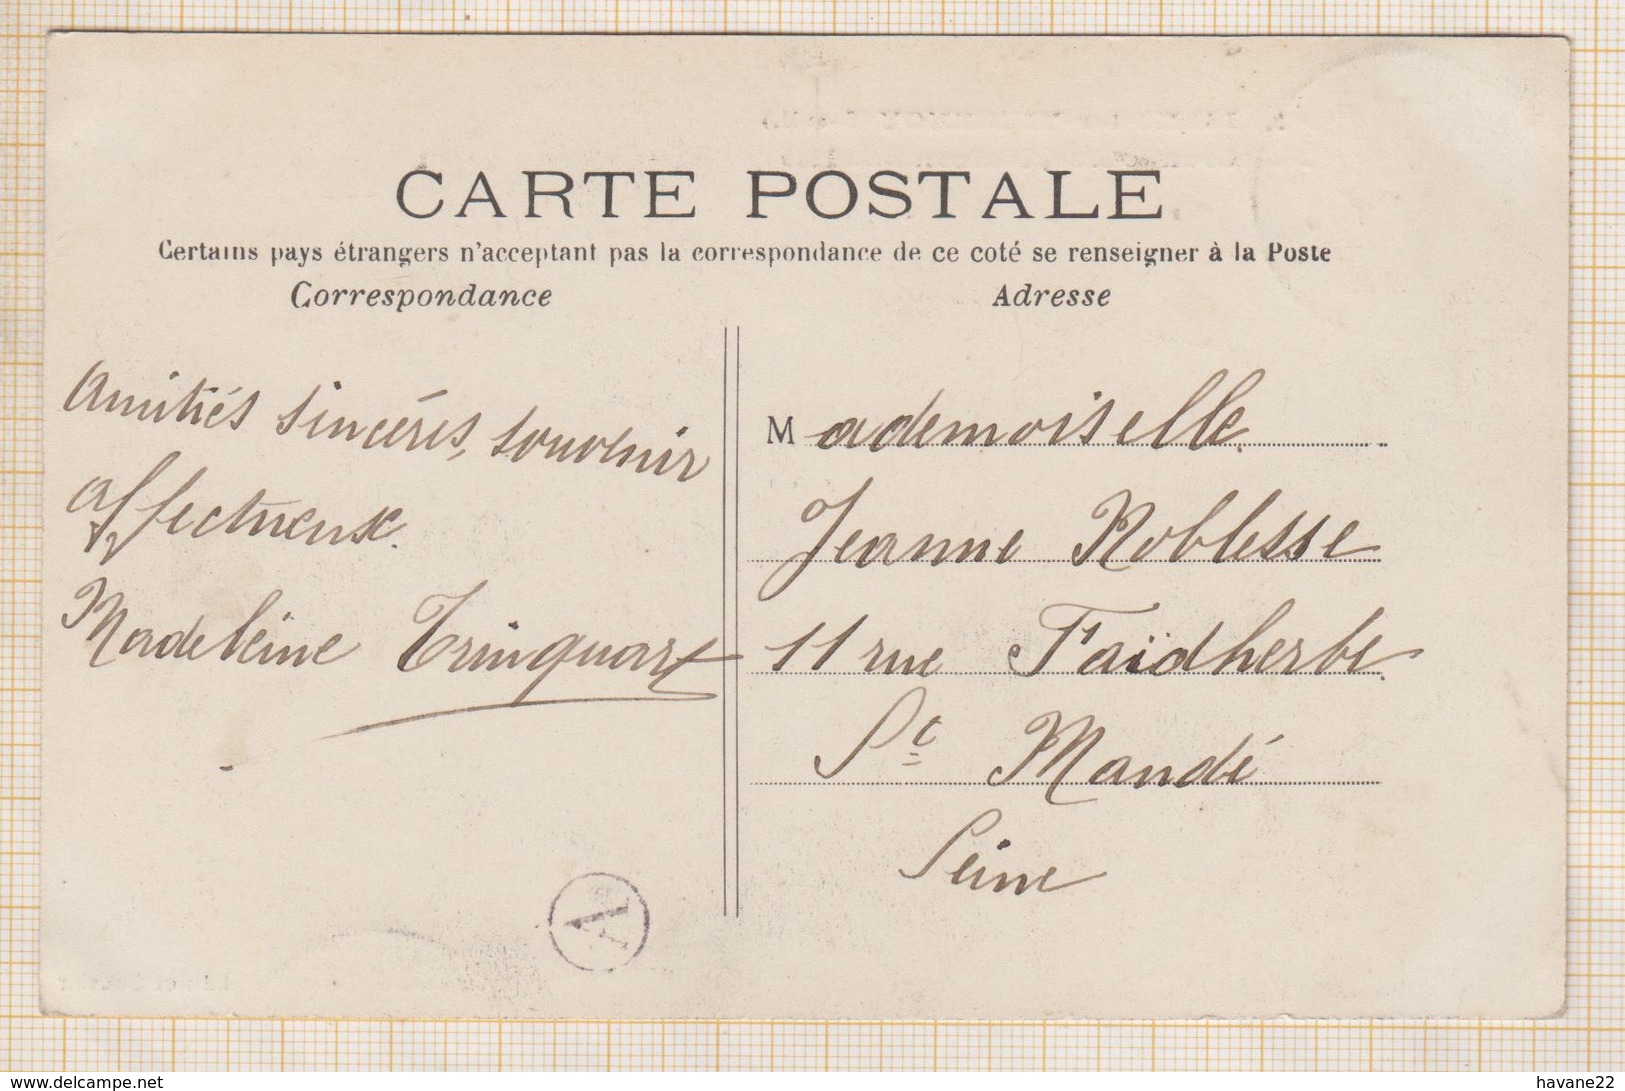 CARTE POSTALE
Certains pays étrangers n'acceptant pas la correspondance de ce coté se renseigner à la Poste
Correspondance
Adresse
Amitiés sincéres, souvenir
affectueux.
Madeleine Trinquart
Mademoiselle
Jeanne Noblesse
11 rue Faïdherbe
St Mandé
Seine
A
www.delcampe.net
havane22